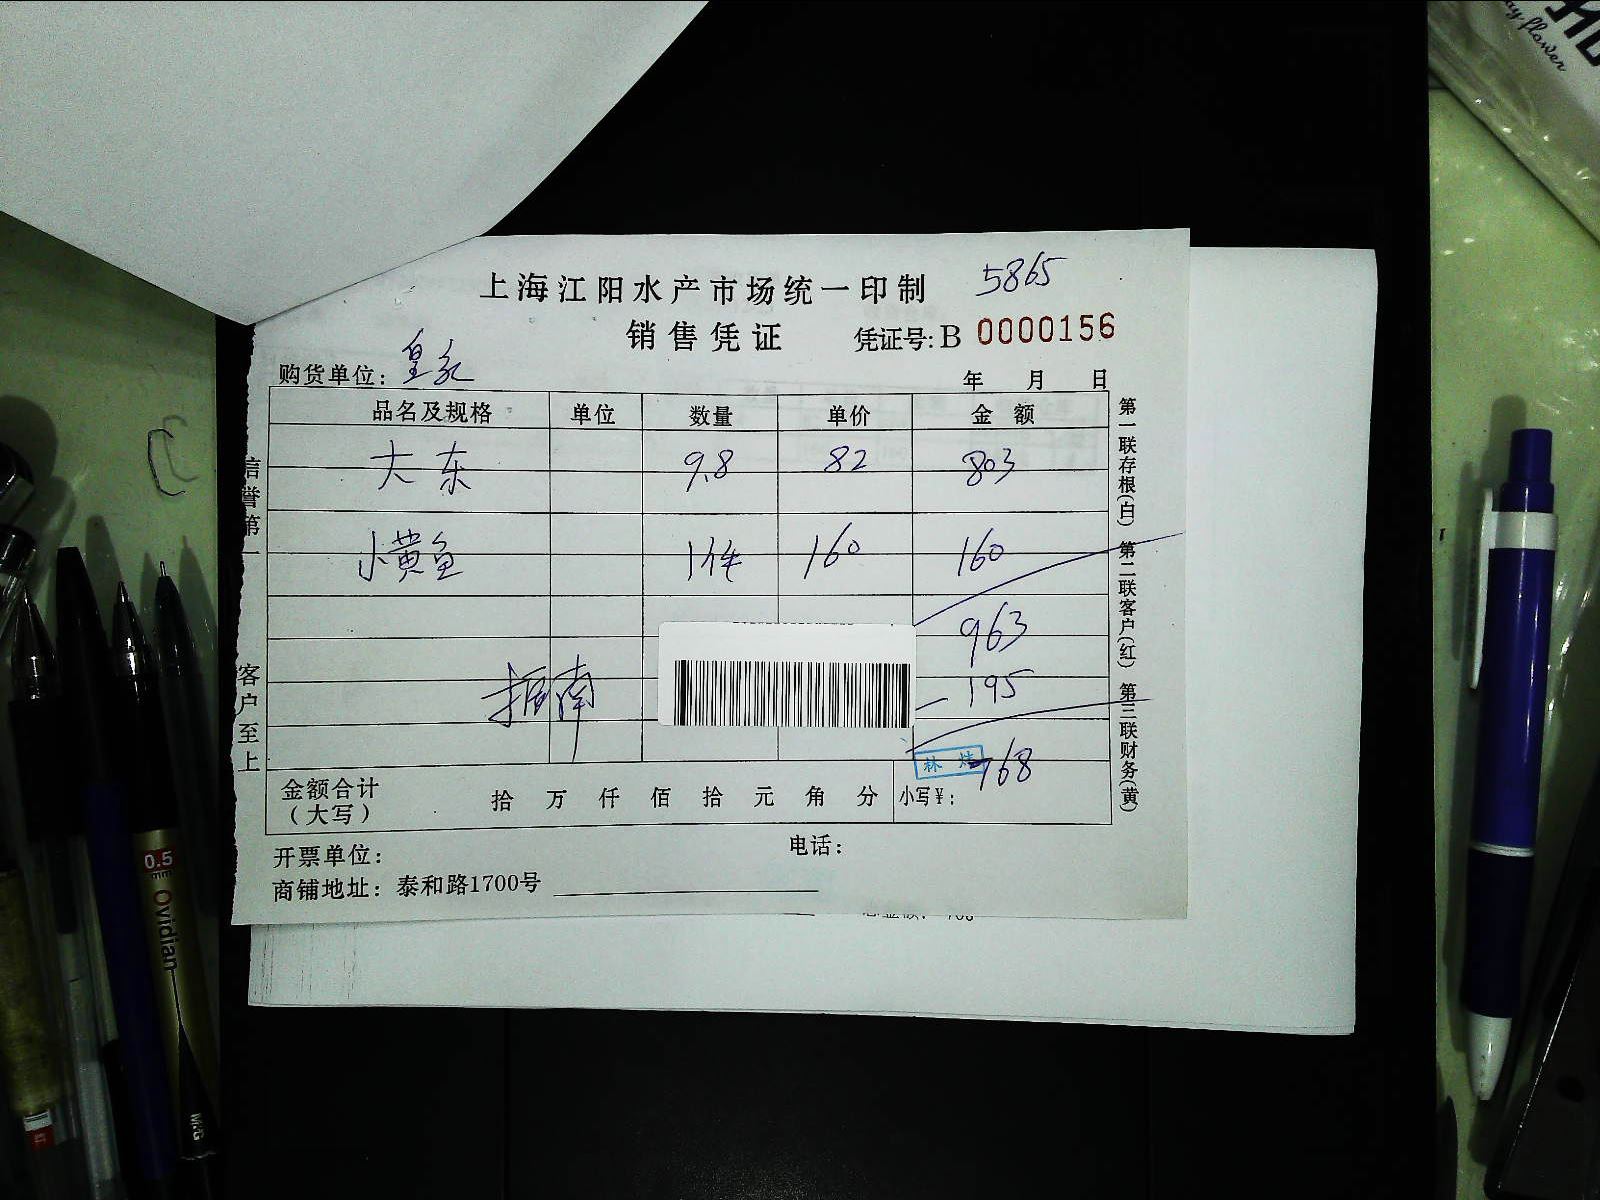 上海江阳水产市场统一印制
5865
销售凭证
凭证号:B 0000156
购货单位:
年 月 日
品名及规格 单位 数量 单价 金额
大东 9.8 82 803
小黄鱼 1件 160 160
963
-195
768
金额合计
(大写)
拾 万 仟 佰 拾 元 角 分 小写¥:
开票单位:
电话:
商铺地址:泰和路1700号
信誉第一
客户至上
第一联存根(白) 第二联客户(红) 第三联财务(黄)
0.5
Ovidian
flower